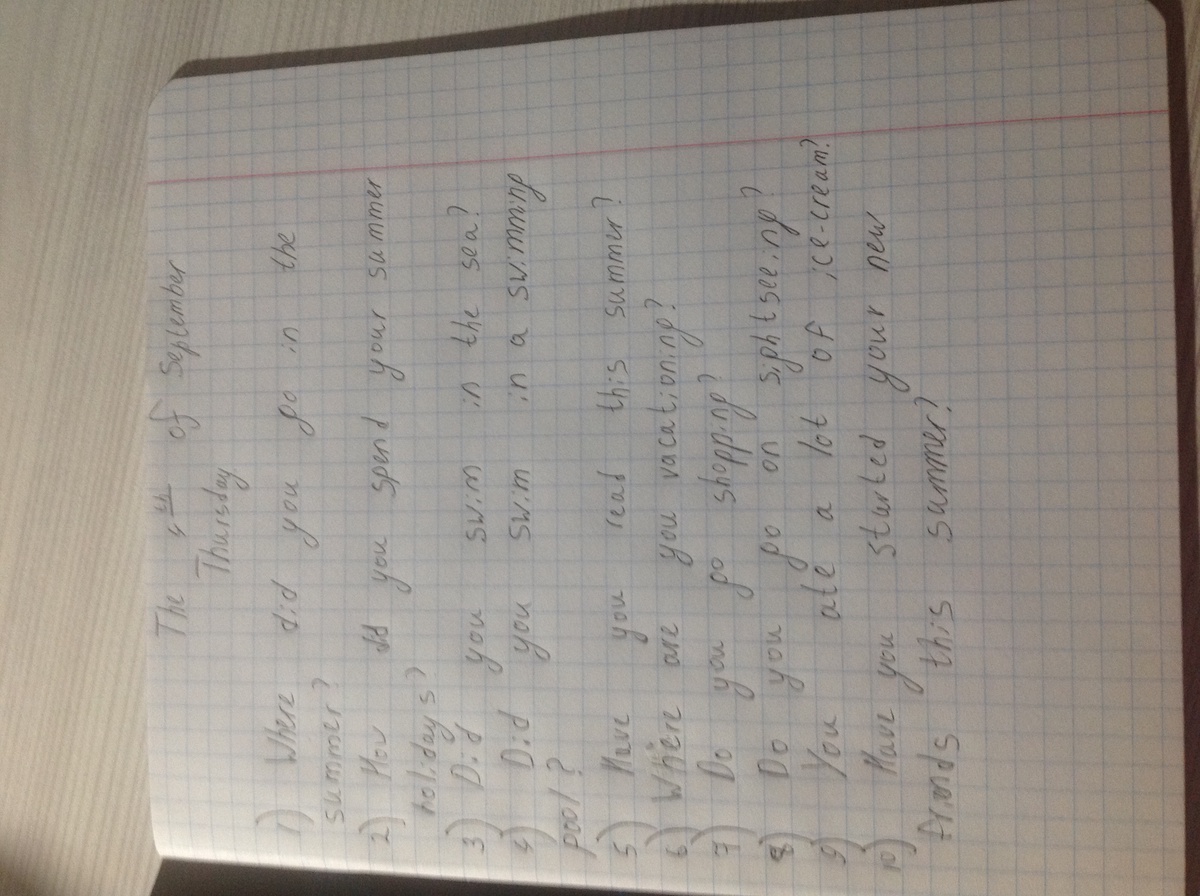 The 4th of September
Thursday
1) Where did you go in the
summer?
2) How did you spend your summer
holidays?
3) Did you swim in the sea?
4) Did you swim in a swimming
pool?
5) Have you read this summer?
6) Where are you vacationing?
7) Do you go shopping?
8) Do you go on sightseeing?
9) You ate a lot of ice-cream?
10) Have you started your new
friends this summer?